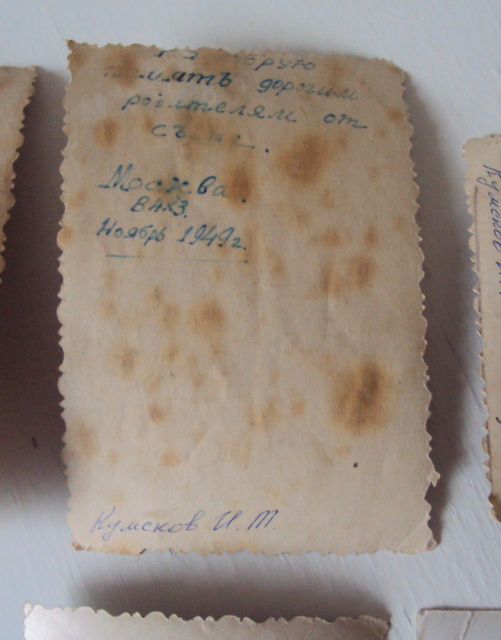 память дорогим
родителям от
Москва.
ВАХЗ.
Ноябрь 1949г.
Кумсков И. Т.